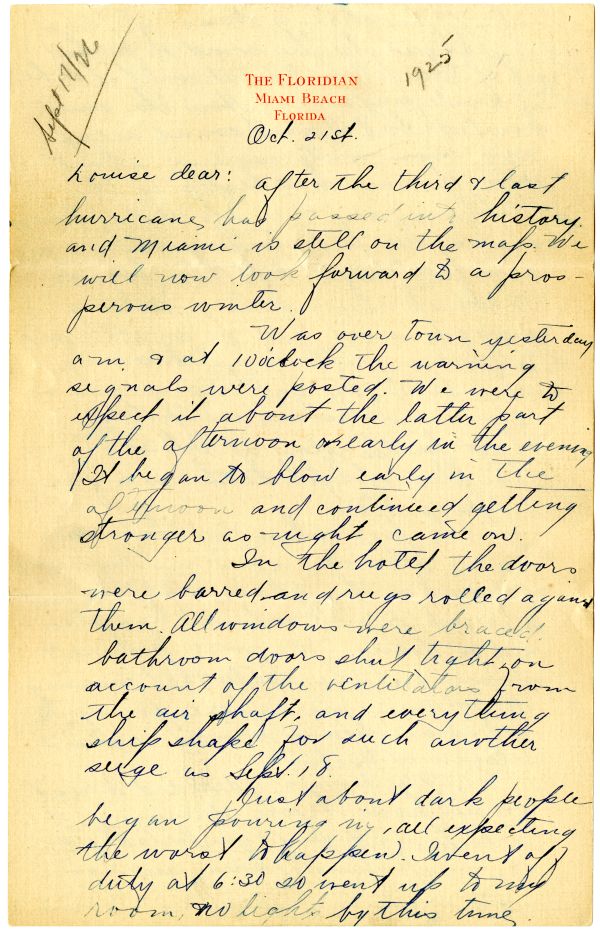 Sept 17/26
1925
THE FLORIDIAN
MIAMI BEACH
FLORIDA
Oct. 21st.
Louise dear: After the third & last
hurricane has passed into history
and Miami is still on the map. We
will now look forward to a pros-
perous winter.
Was over town yesterday
a.m. & at 10 o'clock the warning
signals were posted. We were to
expect it about the latter part
of the afternoon or early in the evening
It began to blow early in the
afternoon and continued getting
stronger as night came on.
In the hotel the doors
were barred and rugs rolled against
them. All windows were braced.
bathroom doors shut tight, on
account of the ventilators from
the air shaft, and everything
ship shape for such another
seige as Sept. 18.
Just about dark people
began pouring in, all expecting
the worst to happen. I went off
duty at 6:30 so went up to my
room, no lights by this time,